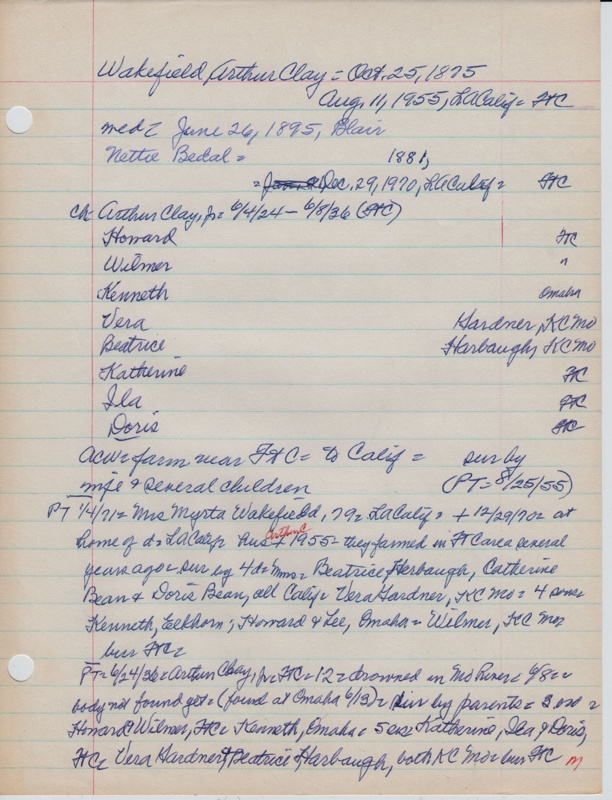 Wakefield, Arthur Clay = Oct. 25, 1875
Aug. 11, 1955, LA Calif = FtC
med = June 26, 1895, Blair
Nettie Bedal = 1881,
= Dec. 29, 1970, LA Calif = FtC
ch Arthur Clay, Jr = 6/4/24 - 6/8/36 (FtC)
Howard FtC
Wilmer "
Kenneth Omaha
Vera Hardner, KC Mo
Beatrice Harbaugh, KC Mo
Katherine FtC
Ila FtC
Doris FtC
ACW = farm near FtC = to Calif = sur by
wife & several children (PT = 8/25/55)
PT 1/4/71 = Mrs Myrta Wakefield, 79 = LA Calif = + 12/29/70 = at
home of d = LA Calif = hus Arthur C + 1955 = they farmed in FtC area several
years ago = sur by 4 d = Mmes = Beatrice Herbaugh, Catherine
Bean & Doris Bean, all Calif = Vera Gardner, KC Mo = 4 sons =
Kenneth, Elkhorn; Howard & Lee, Omaha = Wilmer, KC Mo =
bur FtC =
PT = 6/24/36 = Arthur Clay, Jr = FtC = 12 = drowned in Mo River = 6/8 =
body not found yet = (found at Omaha 6/13) = sur by parents = 3 =
Howard & Wilmer, FtC = Kenneth, Omaha = 5 sis = Katherine, Ila & Doris,
FtC = Vera Hardner & Beatrice Harbaugh, both KC Mo = bur FtC M